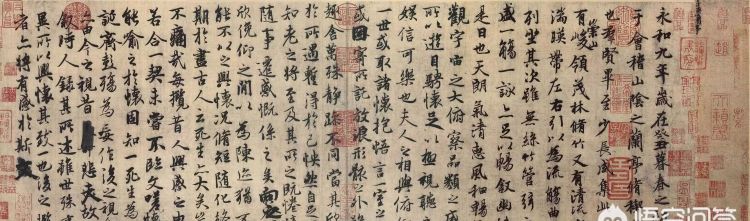 永和九年歲在癸丑暮春之
于會稽山陰之蘭亭脩禊
也羣賢畢至少長咸集此
有崇山峻領茂林脩竹又有清流
湍暎帶左右引以為流觴
列坐其次雖無絲竹管弦
盛一觴一詠亦足以暢敘幽
是日也天朗氣清惠風和暢
觀宇宙之大俯察品類之盛
所以遊目騁懷足以極視聽
娛信可樂也夫人之相與俯
一世或取諸懷抱悟言一室之
或因寄所託放浪形骸之外
趣舍萬殊靜躁不同當其欣
於所遇暫得於己怏然自足
知老之將至及其所之既惓
隨事遷感慨係之矣向之
欣俛仰之閒以為陳迹猶
能不以之興懷況脩短隨化
期於盡古人云死生亦大矣
不痛哉每攬昔人興感之由
若合一契未嘗不臨文嗟悼
能喻之於懷固知一死生為
誕齊彭殤為妄作後之視
亦由今之視昔悲夫故
敘時人錄其所述雖世殊
異所以興懷其致一也後之攬
者亦將有感於斯文
悟空问答